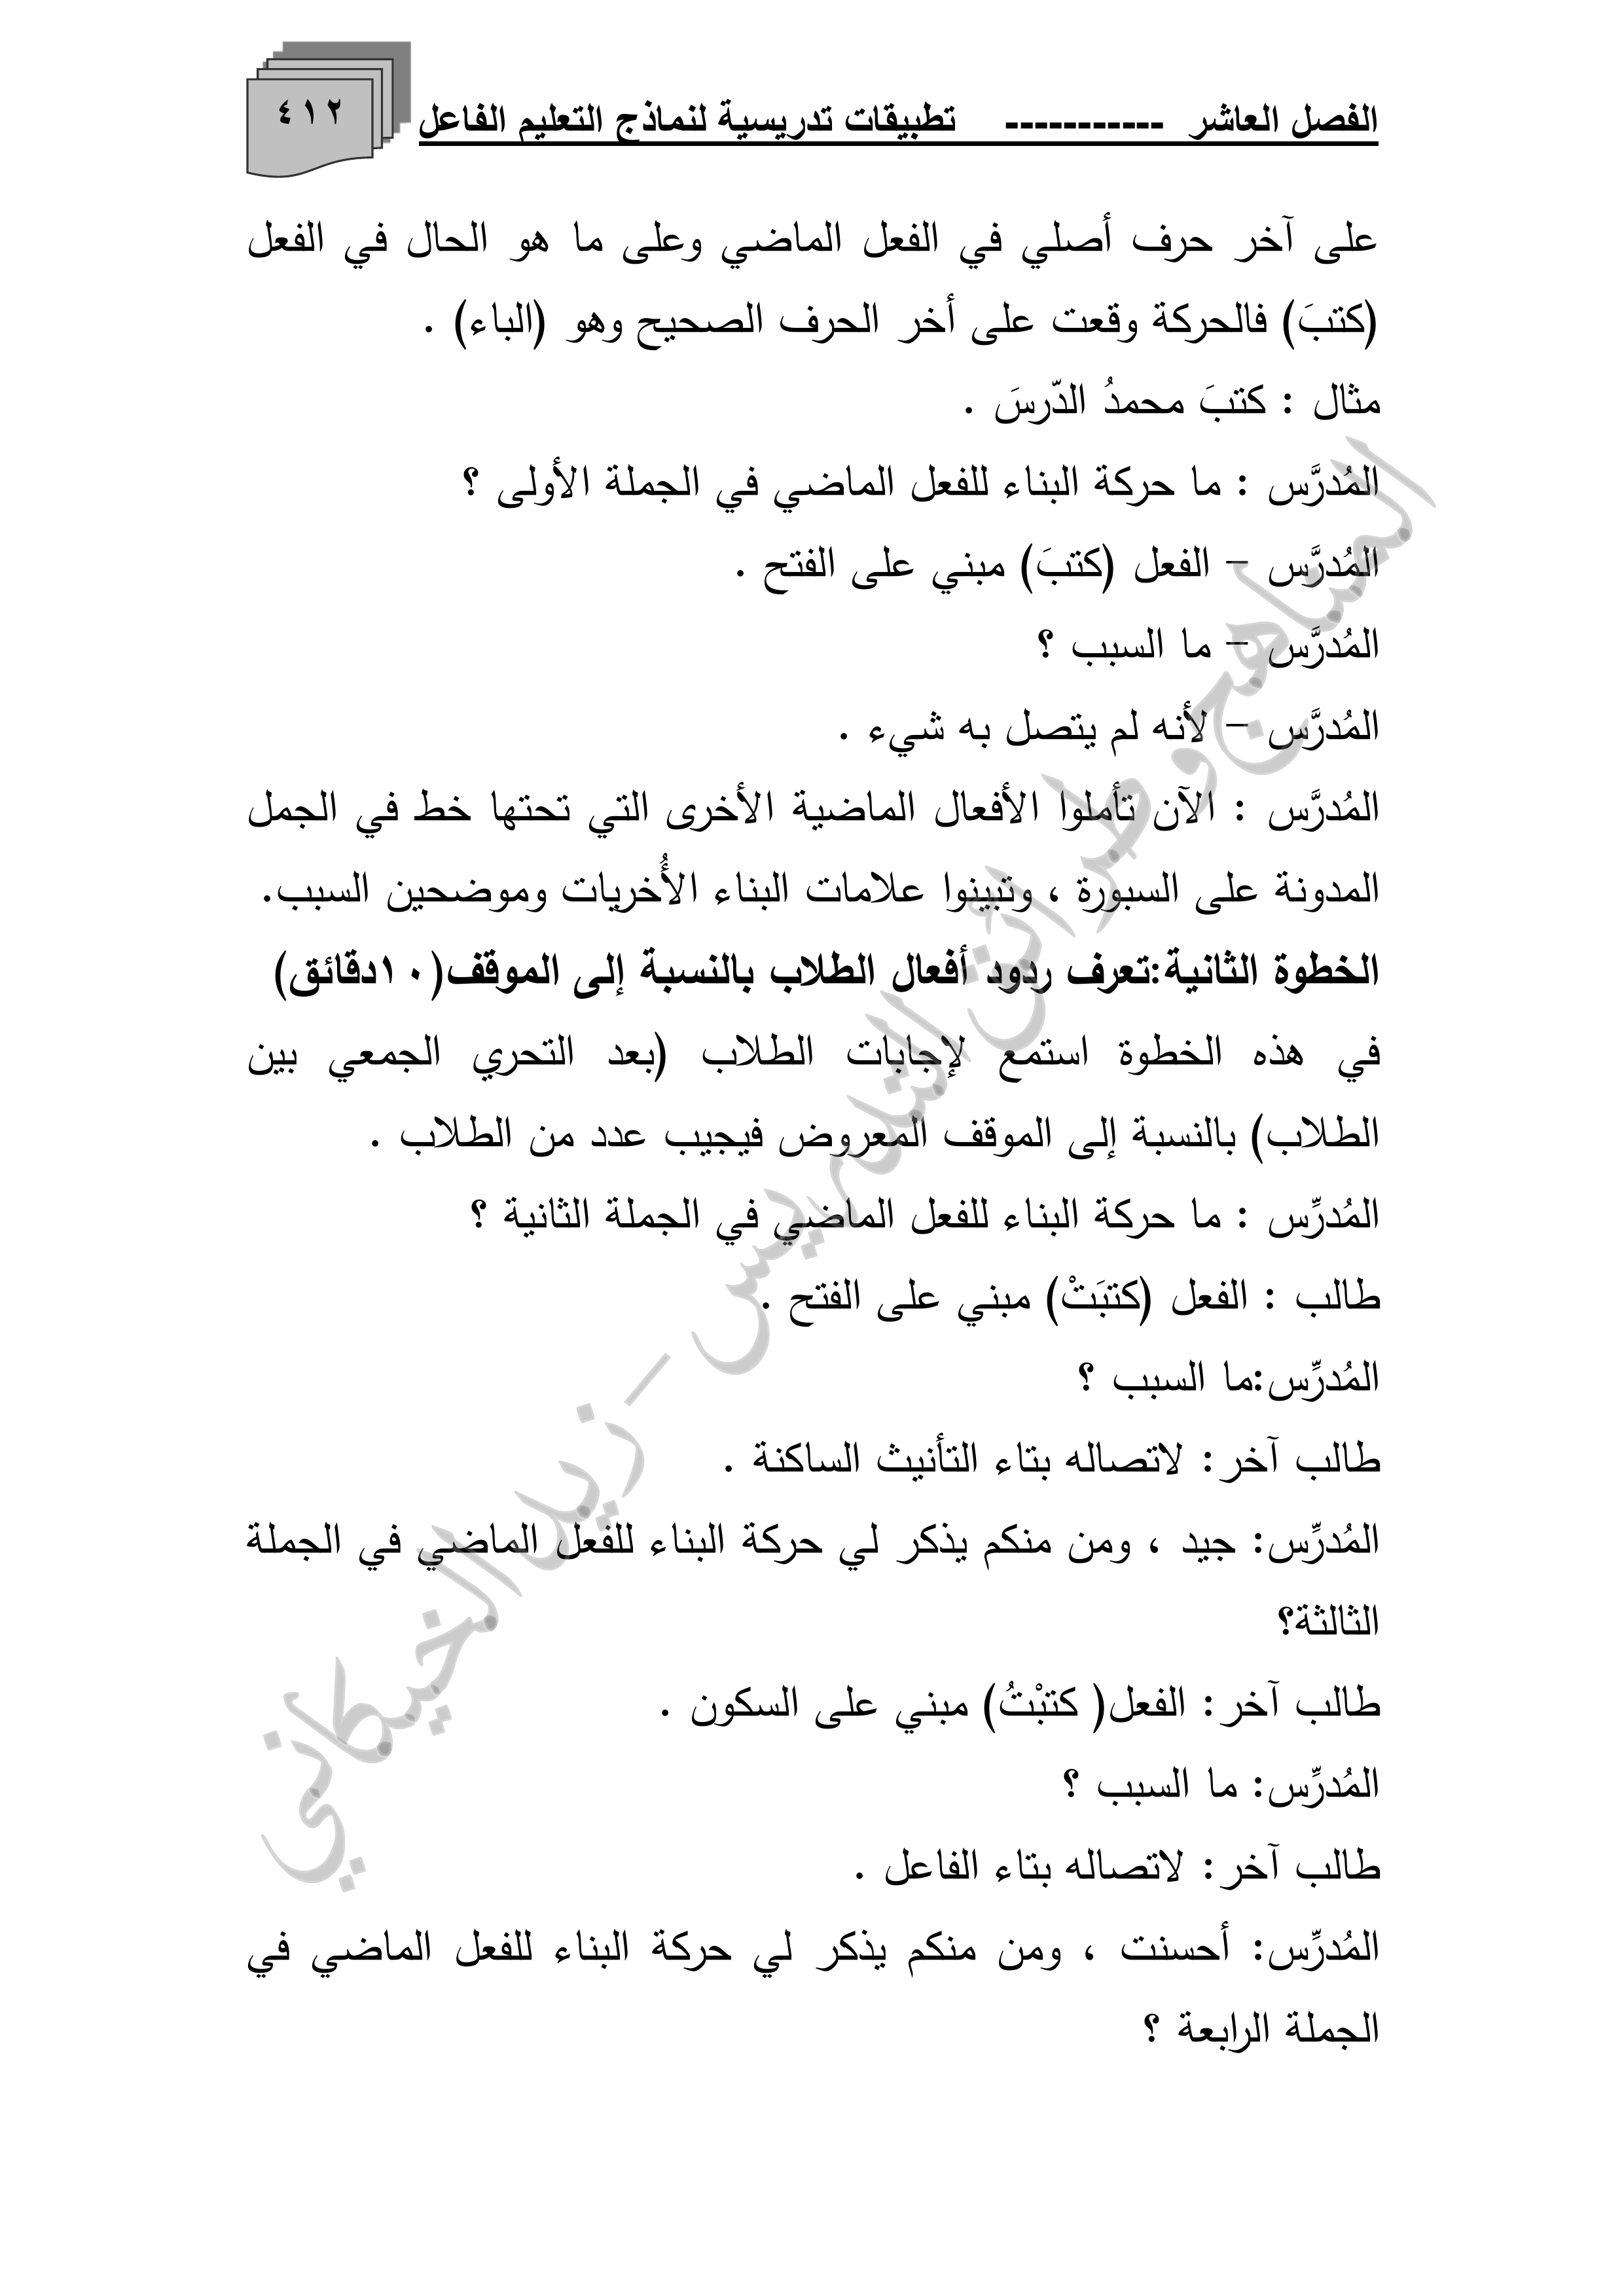 الفصل العاشر ----------- تطبيقات تدريسية لنماذج التعليم الفاعل ٤١٢
على آخر حرف أصلي في الفعل الماضي وعلى ما هو الحال في الفعل
(كتبَ) فالحركة وقعت على أخر الحرف الصحيح وهو (الباء) .
مثال : كتبَ محمدُ الدّرسَ .
المُدرَّس : ما حركة البناء للفعل الماضي في الجملة الأولى ؟
المُدرَّس – الفعل (كتبَ) مبني على الفتح .
المُدرَّس – ما السبب ؟
المُدرَّس – لأنه لم يتصل به شيء .
المُدرَّس : الآن تأملوا الأفعال الماضية الأخرى التي تحتها خط في الجمل
المدونة على السبورة ، وتبينوا علامات البناء الأُخريات وموضحين السبب.
الخطوة الثانية:تعرف ردود أفعال الطلاب بالنسبة إلى الموقف(١٠دقائق)
في هذه الخطوة استمع لإجابات الطلاب (بعد التحري الجمعي بين
الطلاب) بالنسبة إلى الموقف المعروض فيجيب عدد من الطلاب .
المُدرِّس : ما حركة البناء للفعل الماضي في الجملة الثانية ؟
طالب : الفعل (كتبَتْ) مبني على الفتح .
المُدرِّس:ما السبب ؟
طالب آخر: لاتصاله بتاء التأنيث الساكنة .
المُدرِّس: جيد ، ومن منكم يذكر لي حركة البناء للفعل الماضي في الجملة
الثالثة؟
طالب آخر: الفعل( كتبْتُ) مبني على السكون .
المُدرِّس: ما السبب ؟
طالب آخر: لاتصاله بتاء الفاعل .
المُدرِّس: أحسنت ، ومن منكم يذكر لي حركة البناء للفعل الماضي في
الجملة الرابعة ؟
المناهج وطرائق التدريس – زيد الخيكاني